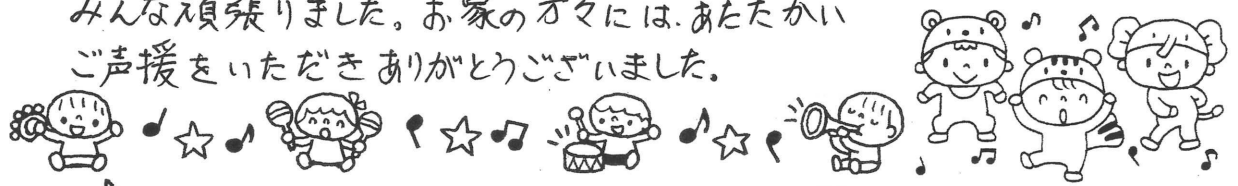 みんな頑張りました。お家の方々には、あたたかい
ご声援をいただきありがとうございました。